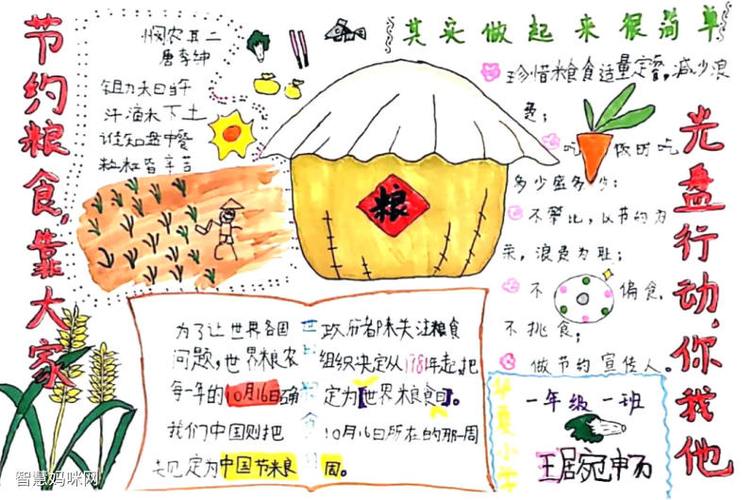 节约粮食,靠大家
悯农其二
唐李绅
锄禾日当午
汗滴禾下土
谁知盘中餐
粒粒皆辛苦
粮
其实做起来很简单
珍惜粮食适量定餐,减少浪
费;
吃饭时吃
多少盛多少;
不攀比,以节约为
荣,浪费为耻;
不偏食,
不挑食;
做节约宣传人。
光盘行动,你我他
为了让世界各国政府都来关注粮食
问题,世界粮农组织决定从1981年起,把
每一年的10月16日确定为【世界粮食日】。
我们中国则把10月16日所在的那一周
定为中国节粮周。
一年级一班
智慧妈咪网